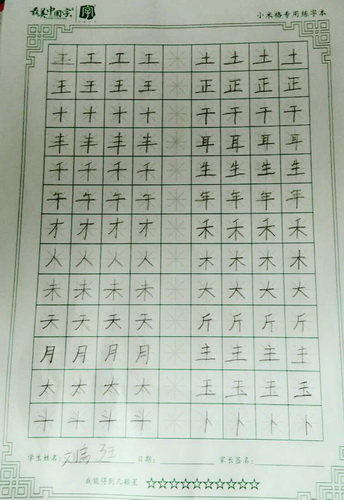 最美中国字 小米格专用练字本
工 工 工 工 土 土 土 土
王 王 王 王 正 正 正 正
十 十 十 十 干 干 干 干
丰 丰 丰 丰 耳 耳 耳 耳
千 千 千 千 生 生 生 生
午 午 午 午 年 年 年 年
才 才 才 才 禾 禾 禾 禾
人 人 人 人 木 木 木 木
未 未 未 未 大 大 大 大
天 天 天 天 斤 斤 斤 斤
月 月 月 月 主 主 主 主
太 太 太 太 玉 玉 玉 玉
斗 斗 斗 斗 卜 卜 卜 卜
学生姓名: 日期: 家长签名:
我能得到几颗星 ☆☆☆☆☆☆☆☆☆☆